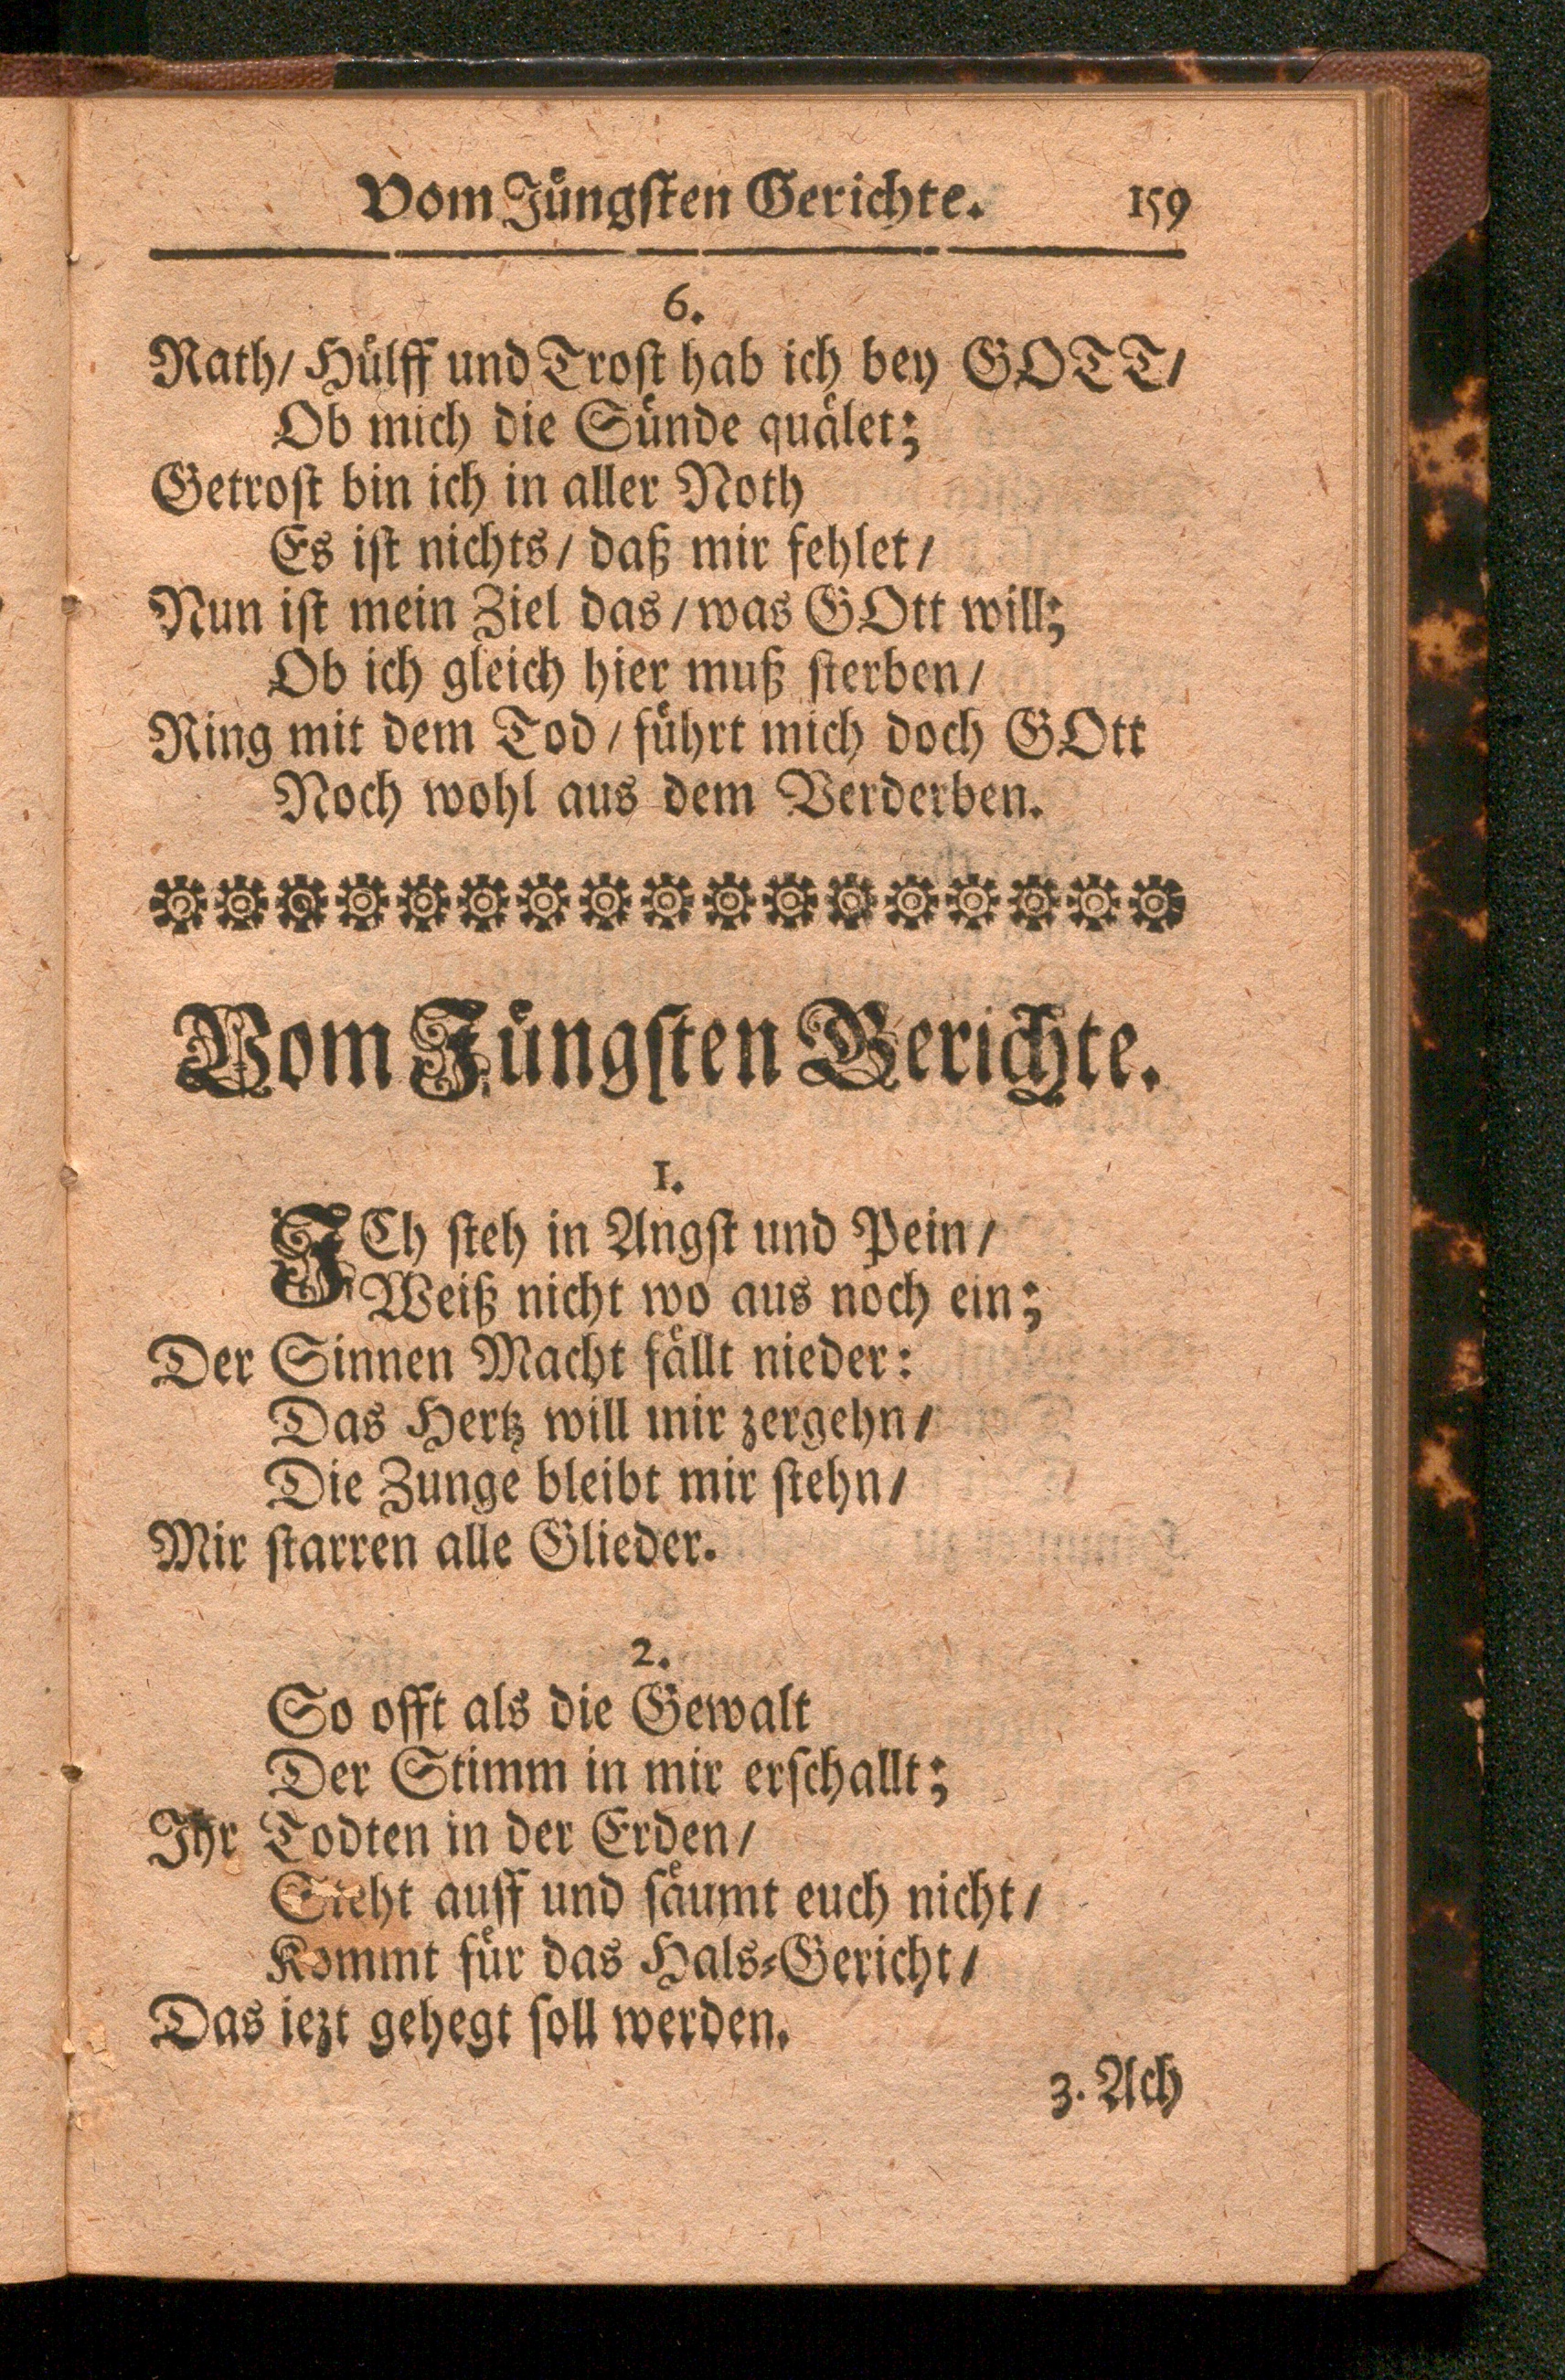 Vom Jüngsten Gerichte. 159
6.
Rath/ Hülff und Trost hab ich bey GOTT/
Ob mich die Sünde quälet;
Getrost bin ich in aller Noth
Es ist nichts/ daß mir fehlet/
Nun ist mein Ziel das/ was GOtt will;
Ob ich gleich hier muß sterben/
Ring mit dem Tod/ führt mich doch GOtt
Noch wohl aus dem Verderben.
Vom Jüngsten Gerichte.
1.
ICh steh in Angst und Pein/
Weiß nicht wo aus noch ein;
Der Sinnen Macht fällt nieder:
Das Hertz will mir zergehn/
Die Zunge bleibt mir stehn/
Mir starren alle Glieder.
2.
So offt als die Gewalt
Der Stimm in mir erschallt;
Ihr Todten in der Erden/
Steht auff und säumt euch nicht/
Kommt für das Hals-Gericht/
Das iezt gehegt soll werden.
3. Ach